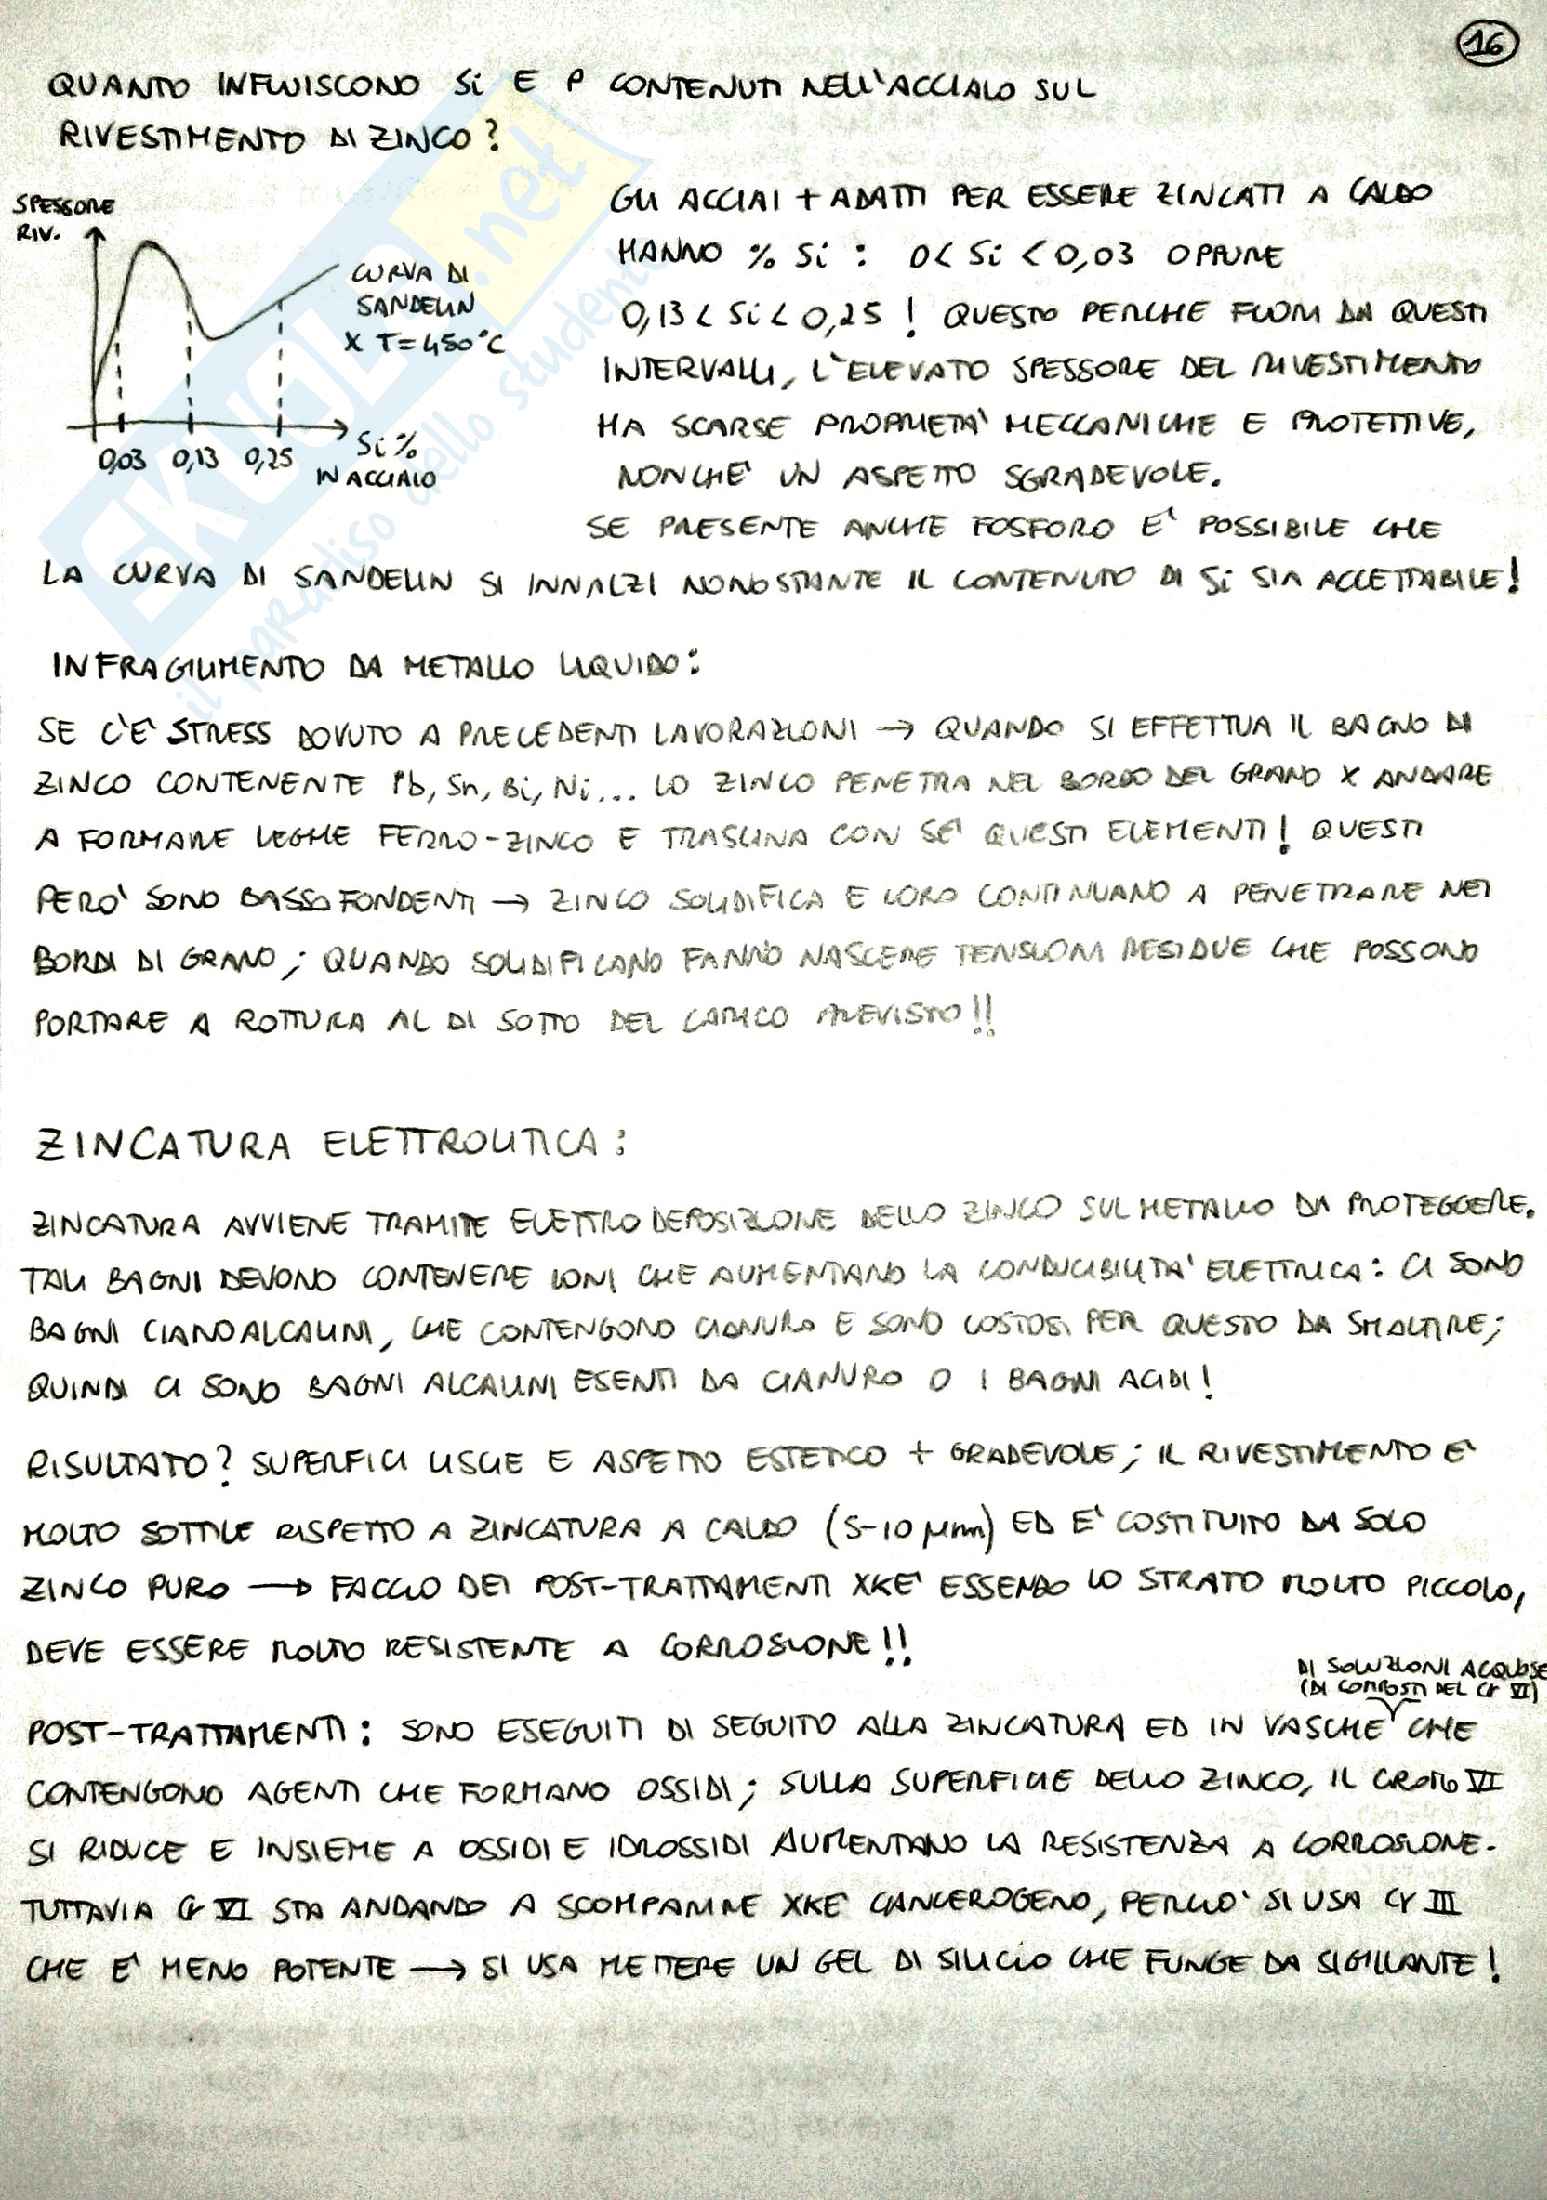 16
QUANTO INFLUISCONO Si E P CONTENUTI NELL'ACCIAIO SUL
RIVESTIMENTO DI ZINCO?
SPESSORE
RIV.
CURVA DI
SANDELIN
X T=450°C
0,03 0,13 0,25
Si%
IN ACCIAIO
GLI ACCIAI + ADATTI PER ESSERE ZINCATI A CALDO
HANNO % Si : 0< Si < 0,03 OPPURE
0,13 < Si < 0,25 ! QUESTO PERCHE FUORI DA QUESTI
INTERVALLI, L'ELEVATO SPESSORE DEL RIVESTIMENTO
HA SCARSE PROPRIETA' MECCANICHE E PROTETTIVE,
NONCHE' UN ASPETTO SGRADEVOLE.
SE PRESENTE ANCHE FOSFORO E' POSSIBILE CHE
LA CURVA DI SANDELIN SI INNALZI NONOSTANTE IL CONTENUTO DI Si SIA ACCETTABILE!
INFRAGILIMENTO DA METALLO LIQUIDO:
SE C'E' STRESS DOVUTO A PRECEDENTI LAVORAZIONI → QUANDO SI EFFETTUA IL BAGNO DI
ZINCO CONTENENTE Pb, Sn, Bi, Ni... LO ZINCO PENETRA NEL BORDO DEL GRANO X ANDARE
A FORMARE LEGHE FERRO-ZINCO E TRASCINA CON SE' QUESTI ELEMENTI! QUESTI
PERO' SONO BASSOFONDENTI → ZINCO SOLIDIFICA E LORO CONTINUANO A PENETRARE NEI
BORDI DI GRANO; QUANDO SOLIDIFICANO FANNO NASCERE TENSIONI RESIDUE CHE POSSONO
PORTARE A ROTTURA AL DI SOTTO DEL CARICO PREVISTO!!
ZINCATURA ELETTROLITICA:
ZINCATURA AVVIENE TRAMITE ELETTRODEPOSIZIONE DELLO ZINCO SUL METALLO DA PROTEGGERE.
TALI BAGNI DEVONO CONTENERE IONI CHE AUMENTANO LA CONDUCIBILITA' ELETTRICA: CI SONO
BAGNI CIANOALCALINI, CHE CONTENGONO CIANURO E SONO COSTOSI PER QUESTO DA SMALTIRE;
QUINDI CI SONO BAGNI ALCALINI ESENTI DA CIANURO O I BAGNI ACIDI!
RISULTATO? SUPERFICI LISCIE E ASPETTO ESTETICO + GRADEVOLE; IL RIVESTIMENTO E'
MOLTO SOTTILE RISPETTO A ZINCATURA A CALDO (5-10 μm) ED E' COSTITUITO DA SOLO
ZINCO PURO → FACCIO DEI POST-TRATTAMENTI XKE' ESSENDO LO STRATO MOLTO PICCOLO,
DEVE ESSERE MOLTO RESISTENTE A CORROSIONE!!
DI SOLUZIONI ACQUOSE
(DI COMPOSTI DEL Cr VI)
POST-TRATTAMENTI: SONO ESEGUITI DI SEGUITO ALLA ZINCATURA ED IN VASCHE CHE
CONTENGONO AGENTI CHE FORMANO OSSIDI; SULLA SUPERFICIE DELLO ZINCO, IL CROMO VI
SI RIDUCE E INSIEME A OSSIDI E IDROSSIDI AUMENTANO LA RESISTENZA A CORROSIONE.
TUTTAVIA Cr VI STA ANDANDO A SCOMPARIRE XKE' CANCEROGENO, PERCIO' SI USA Cr III
CHE E' MENO POTENTE → SI USA METTERE UN GEL DI SILICIO CHE FUNGE DA SIGILLANTE!
SKUOLA.net
il paradiso dello studente